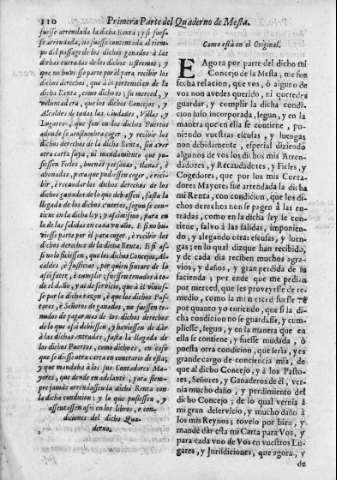 110 Primera Parte del Quaderno de Mesta.
fuesse arrendada la dicha Renta; y si fuesse
arrendada, no fuesse
del passage de los dichos ganados a los
dichos puertos de los dichos
que no huviesse parte por al para recibir los
dichos derechos, que a
dicha Renta, como dichos es; su merced, y
voluntad era, que los dichos Concejos, y
Alcaldes de todas las Ciudades, Villas, y
Lugares, que son en los dichos Puertos
adonde se acostumbra coger, y recibir los
dichos derechos de la dicha Renta, sin aver
otra carta suya, ni mandamiento que pusiessen
Fieles, buenas personas, llanas,
abonadas, para que pudiessen coger, è recibir,
è recaudar los dichos derechos de los
dichos ganados de lo que deviessen, fasta la
llegada de los dichos Puertos, segun se contiene
en la dicha ley; y assimismo, para en
lo de las salidas en cada un año. E si no
huviesse parte por al para coger, y recibir los
dichos derechos de la dicha Renta. E si assi
no lo fiziessen, que los dichos Concejos, Alcaldes,
por la dicha razon, è que los dichos Pastores,
è Señores de ganados, no fuessen tenudos
de pagar mas de los dichos derechos
de lo que assi deviessen, y huviessen de dar
à las dichas entradas, fasta la llegada de
los dichos Puertos, como dicho es, en caso
que se diesse otra carta en contrario de esta;
y que mandaba à los sus Contadores Mayores,
que dende en adelante, para siempre
jamàs arrendassen la dicha Renta con
la dicha condicion; y lo que pusiessen, y
assentassen assi en los libros, è condiciones
del dicho Quaderno.
Como està en el Original.
E Agora por parte del dicho mi
Concejo de la Mesta, me fue
fecha relacion, que vos, ò alguno de
vos non avedes querido, ni queredes
guardar, y cumplir la dicha condicion
suso incorporada, segun, y en la
manera que en ella se contiene, poniendo
vuestras escusas, y luengas
non debidamente, especial diziendo
algunos de vos los dichos mis Arrendadores,
y Recaudadores, y Fieles, y
Cogedores, que por los mis Contadores
Mayores fue arrendada la dicha
mi Renta, con condicion, que los dichos
derechos non se pagan à las entradas,
como en la dicha ley se contiene,
salvo à las salidas, imponiendo,
y alegando otras escusas, y luengas;
en lo qual dizque han recibido,
y de cada dia reciben muchos agravios,
y daños, y gran perdida de su
hacienda; y por ende que me pedian
por merced, que les proveyesse de remedio,
como la mi merced fuesse. E
por quanto yo entiendo, que si la dicha
condicion no se guardasse, y cumpliesse,
segun, y en la manera que en
ella se contiene, y fuesse mudada, ò
puesta otra condicion, que seria, y es
grande cargo de conciencia mia, de
que al dicho Concejo, y à los Pastores,
Señores, y Ganaderos de èl, vernia
mucho daño, y perdimiento del
dicho Concejo; de lo qual vernia à
mi gran deservicio, y mucho daño à
los mis Reynos; tovelo por bien, y
mandè dar esta mi Carta para Vos, y
para cada uno de Vos en vuestros Lugares,
y Jurisdiciones, que agora, y
de